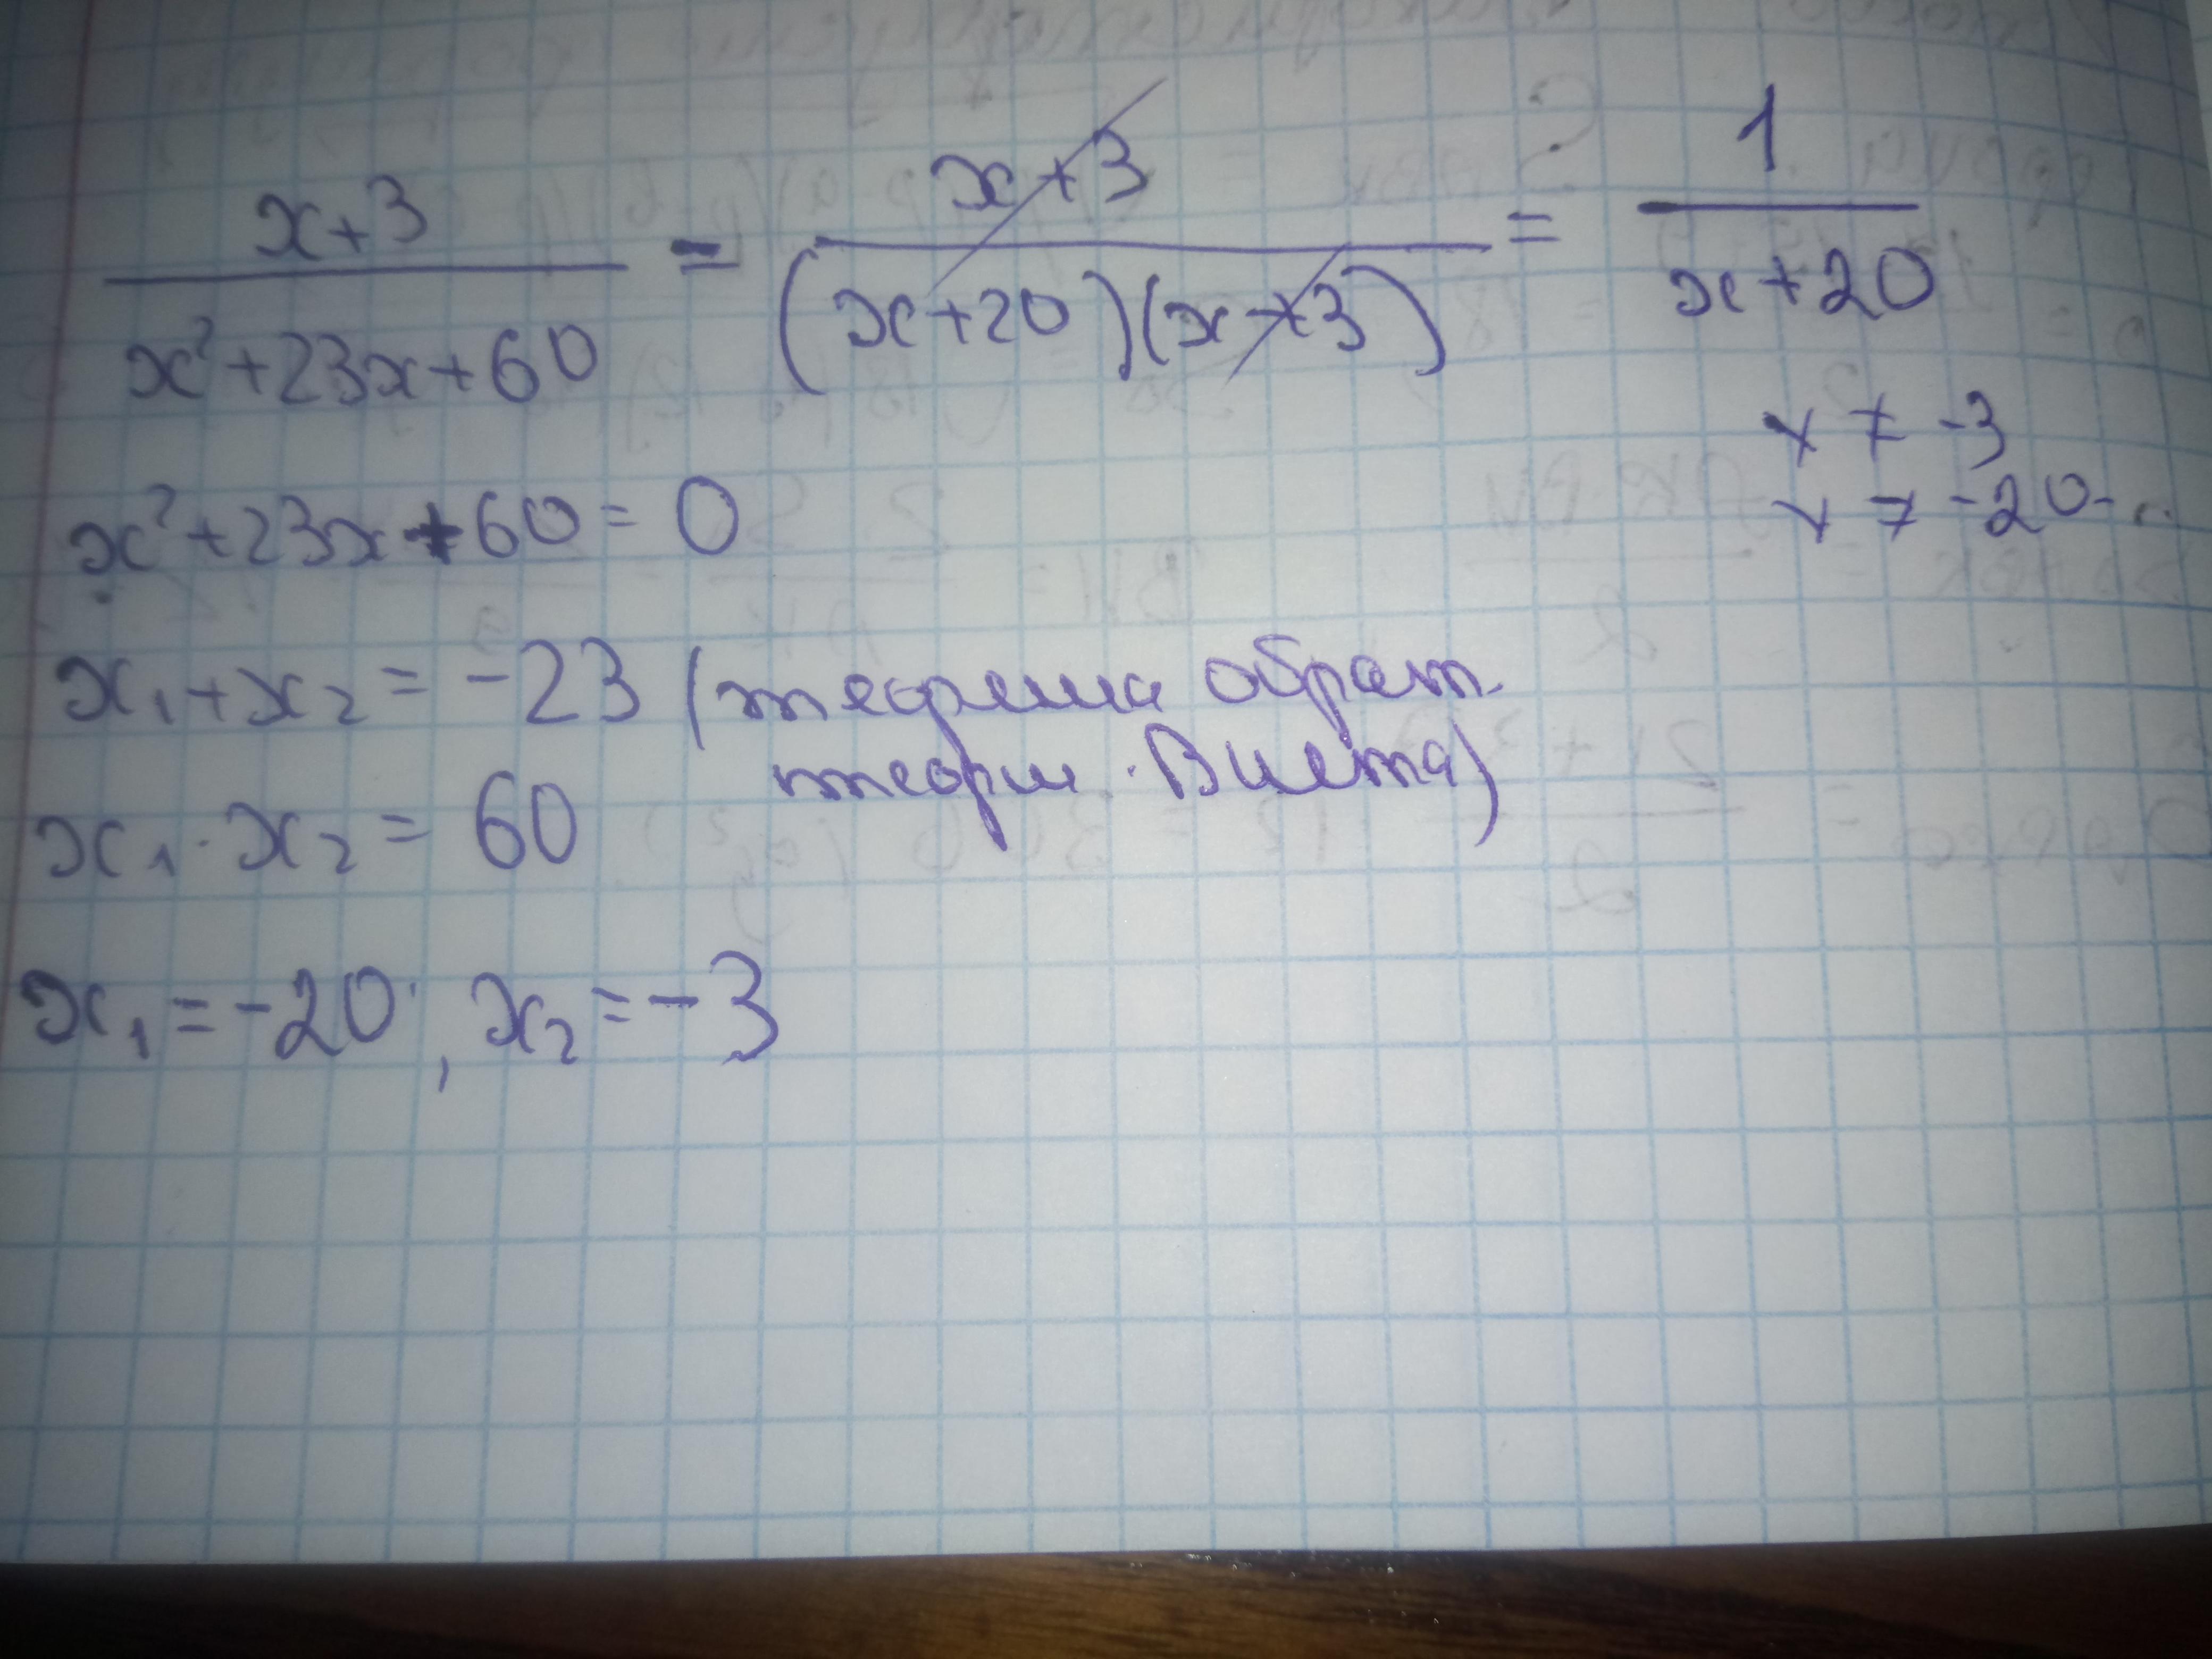 x+3 / x²+23x+60 = x+3 / (x+20)(x+3) = 1 / x+20
x ≠ -3
x ≠ -20
x²+23x+60=0
x₁+x₂=-23 (теорема обрат.
теорем. Виета)
x₁·x₂=60
x₁=-20, x₂=-3